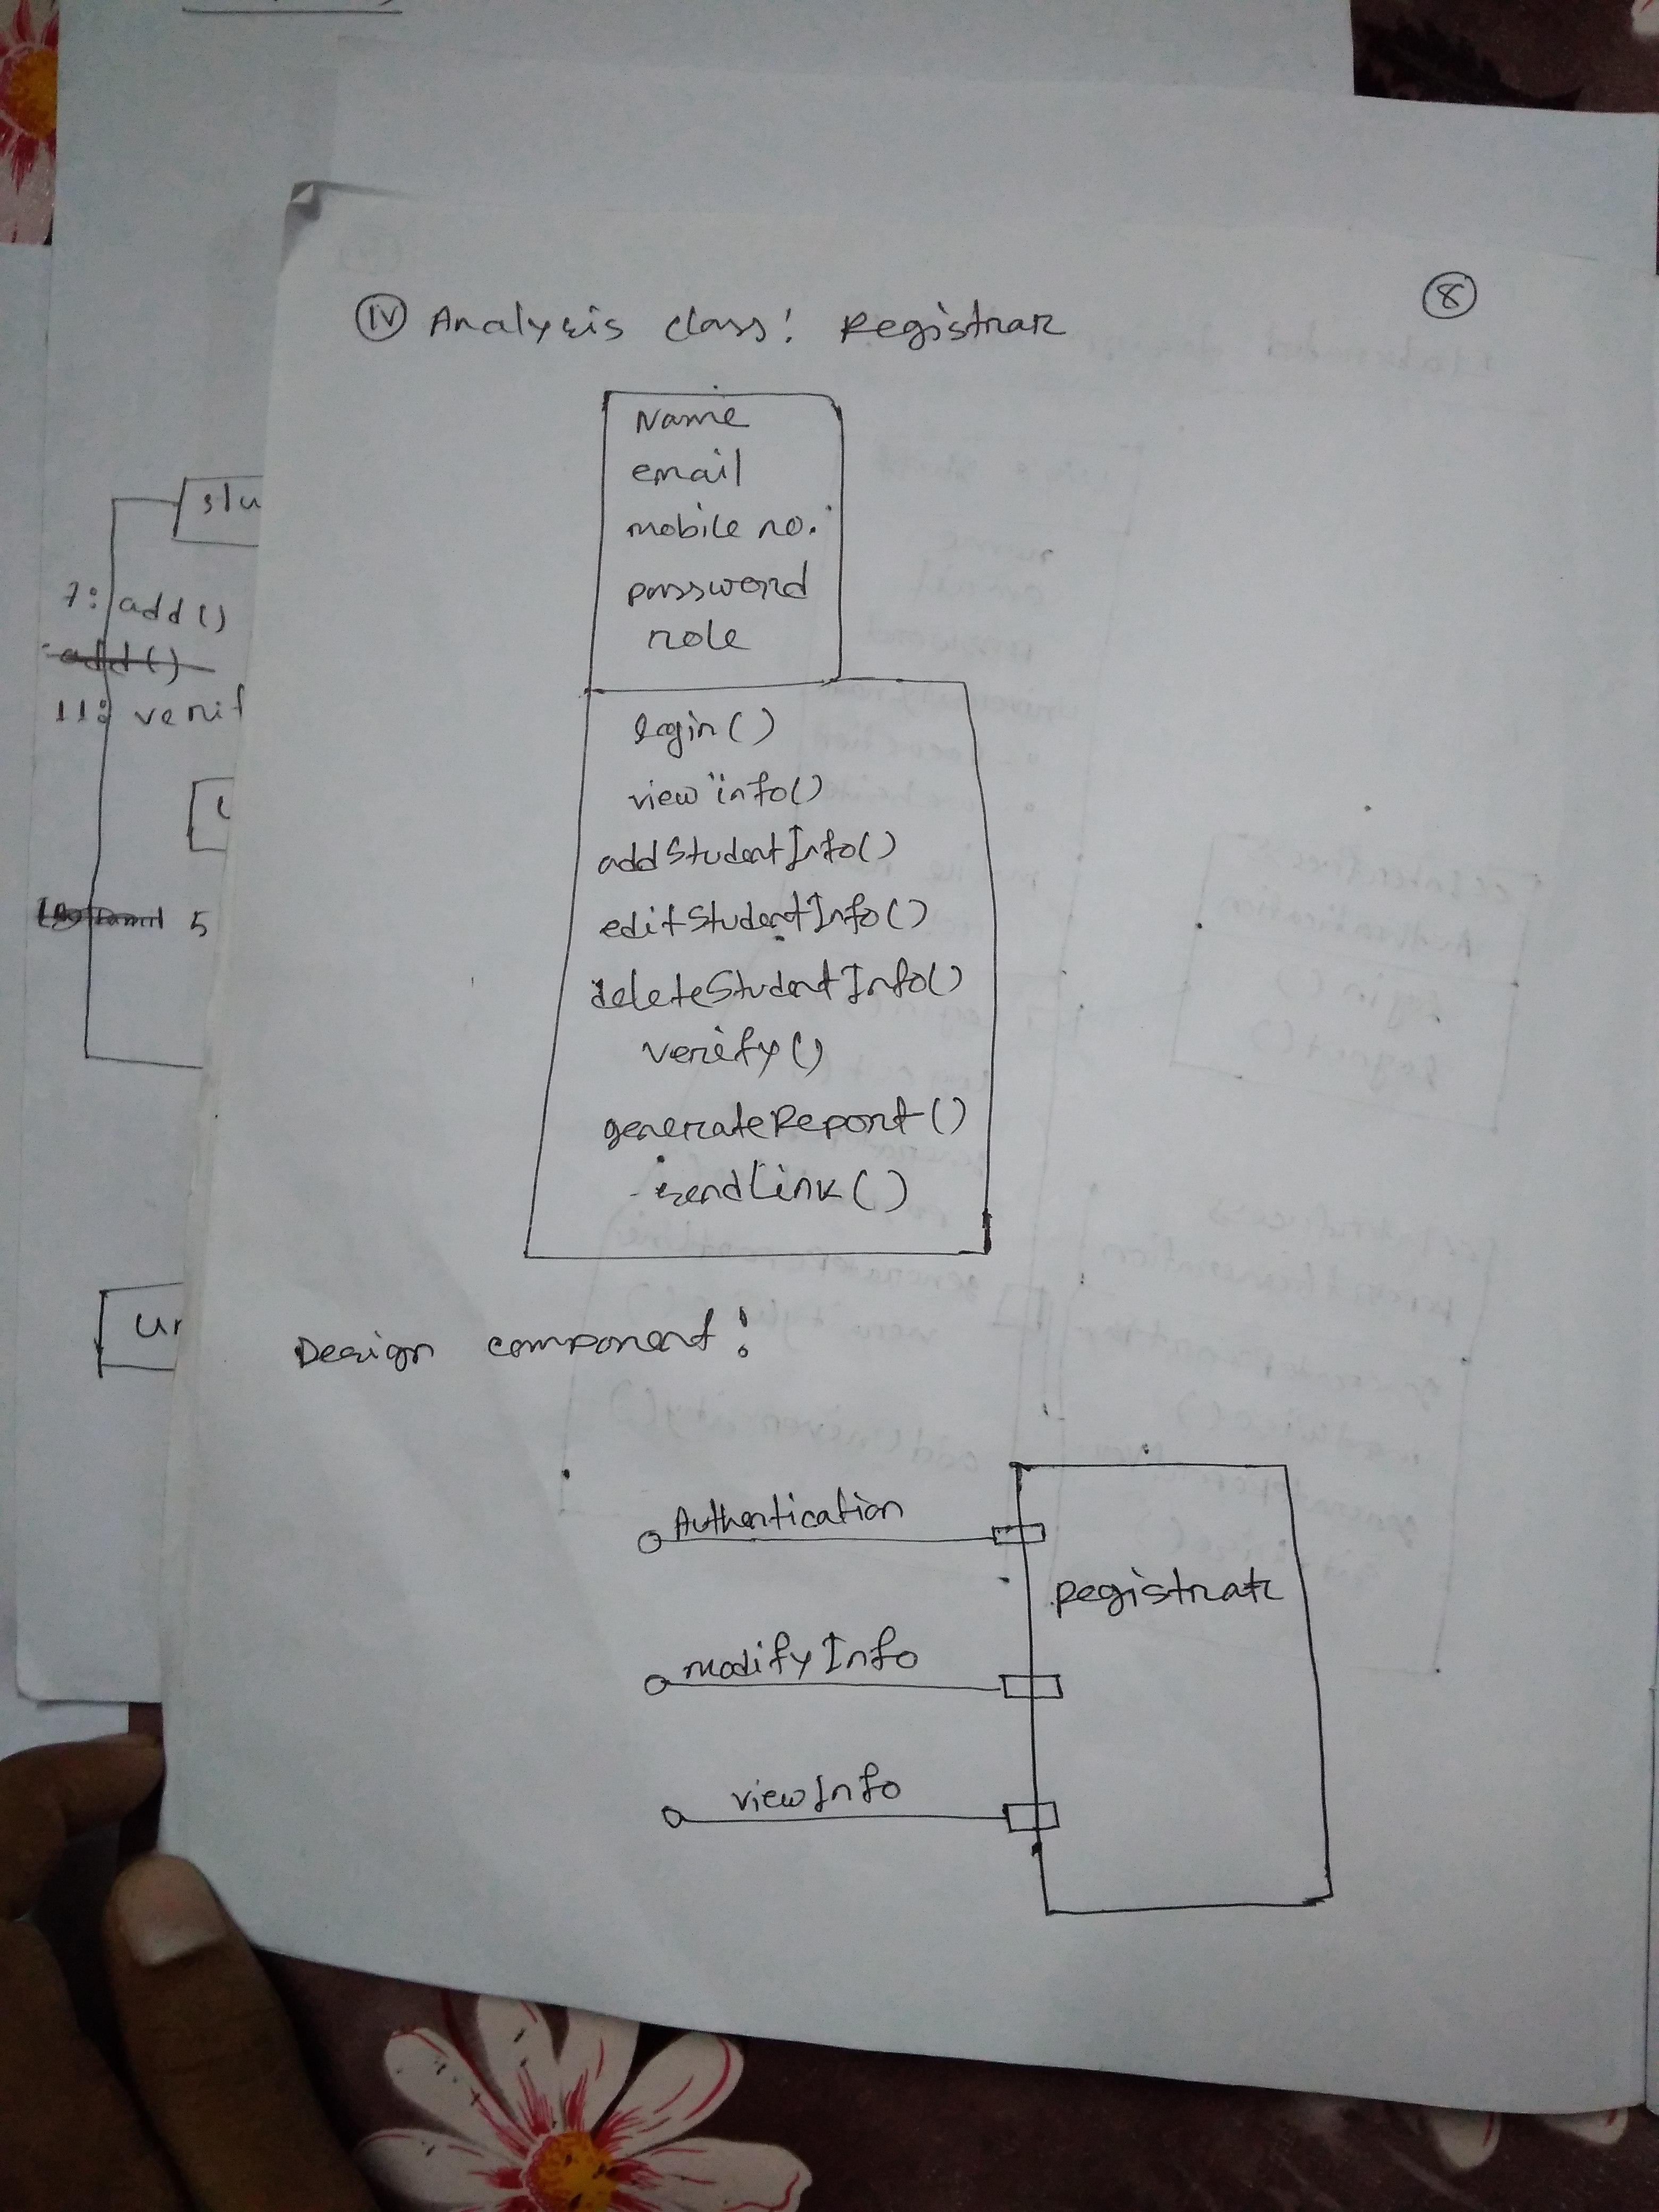 8
IV Analysis class: Registrar
Name
email
mobile no.
password
role
login()
view info()
addStudentInfo()
editStudentInfo()
deleteStudentInfo()
verify()
generateReport()
sendLink()
Design component:
Authentication
Registrar
modifyInfo
viewInfo
stu
7: add()
add()
11: verif
5
ur